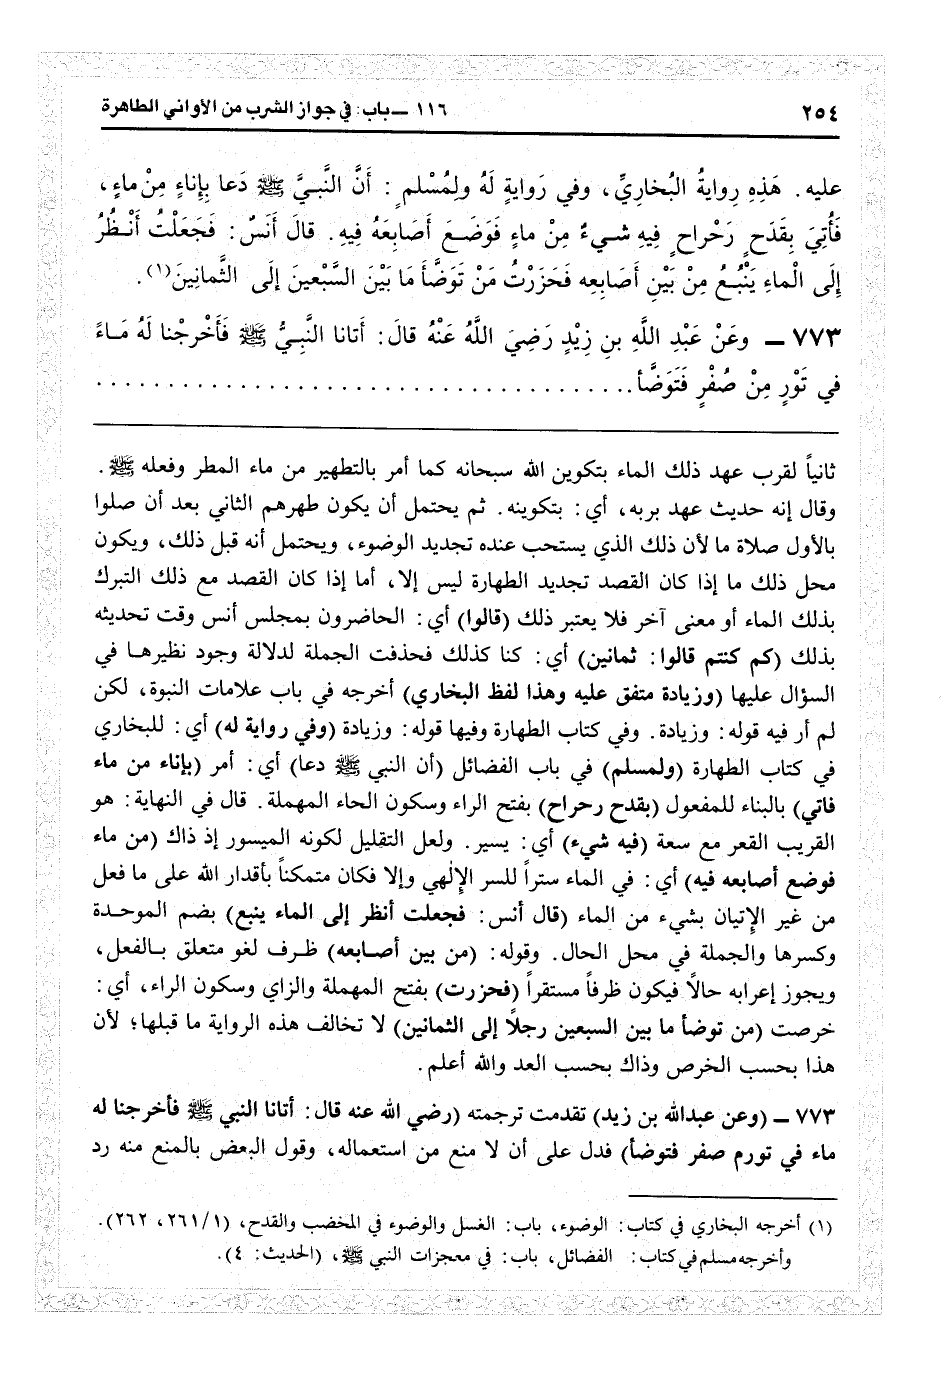 ٢٥٤
١١٦ ــ باب: في جواز الشرب من الأواني الطاهرة
عليه. هَذِهِ رِوايةُ البُخاريِّ، وفي رَوايةٍ لَهُ ولِمُسْلمٍ: أَنَّ النَّبيَّ ﷺ دَعا بِإِناءٍ مِنْ ماءٍ،
فَأُتِيَ بِقَدَحٍ رَحْراحٍ فِيهِ شيءٌ مِنْ ماءٍ فَوَضَعَ أَصَابِعَهُ فِيهِ. قالَ أَنَسٌ: فَجَعَلْتُ أَنْظُرُ
إِلَى الْماءِ يَنْبُعُ مِنْ بَيْنِ أَصَابِعِه فَحَزَرْتُ مَنْ تَوَضَّأَ مَا بَيْنَ السَّبْعينَ إلَى الثَّمانِينَ(١).
٧٧٣ ــ وعَنْ عَبْدِ اللَّهِ بنِ زِيْدٍ رَضِيَ اللَّهُ عَنْهُ قالَ: أَتانا النَّبِيُّ ﷺ فَأَخْرجْنا لَهُ مَاءً
في تَوْرٍ مِنْ صُفْرٍ فَتَوَضَّأ......................................
ثانياً لقرب عهد ذلك الماء بتكوين الله سبحانه كما أمر بالتطهير من ماء المطر وفعله ﷺ.
وقال إنه حديث عهد بربه، أي: بتكوينه. ثم يحتمل أن يكون طهرهم الثاني بعد أن صلوا
بالأول صلاة ما لأن ذلك الذي يستحب عنده تجديد الوضوء، ويحتمل أنه قبل ذلك، ويكون
محل ذلك ما إذا كان القصد تجديد الطهارة ليس إلا، أما إذا كان القصد مع ذلك التبرك
بذلك الماء أو معنى آخر فلا يعتبر ذلك (قالوا) أي: الحاضرون بمجلس أنس وقت تحديثه
بذلك (كم كنتم قالوا: ثمانين) أي: كنا كذلك فحذفت الجملة لدلالة وجود نظيرها في
السؤال عليها (وزيادة متفق عليه وهذا لفظ البخاري) أخرجه في باب علامات النبوة، لكن
لم أر فيه قوله: وزيادة. وفي كتاب الطهارة وفيها قوله: وزيادة (وفي رواية له) أي: للبخاري
في كتاب الطهارة (ولمسلم) في باب الفضائل (أن النبي ﷺ دعا) أي: أمر (بإناء من ماء
فاتي) بالبناء للمفعول (بقدح رحراح) بفتح الراء وسكون الحاء المهملة. قال في النهاية: هو
القريب القعر مع سعة (فيه شيء) أي: يسير. ولعل التقليل لكونه الميسور إذ ذاك (من ماء
فوضع أصابعه فيه) أي: في الماء ستراً للسر الإلٰهي وإلا فكان متمكناً بأقدار الله على ما فعل
من غير الإتيان بشيء من الماء (قال أنس: فجعلت أنظر إلى الماء ينبع) بضم الموحدة
وكسرها والجملة في محل الحال. وقوله: (من بين أصابعه) ظرف لغو متعلق بالفعل،
ويجوز إعرابه حالاً فيكون ظرفاً مستقراً (فحزرت) بفتح المهملة والزاي وسكون الراء، أي:
خرصت (من توضأ ما بين السبعين رجلاً إلى الثمانين) لا تخالف هذه الرواية ما قبلها؛ لأن
هذا بحسب الخرص وذاك بحسب العد والله أعلم.
٧٧٣ ــ (وعن عبدالله بن زيد) تقدمت ترجمته (رضي الله عنه قال: أتانا النبي ﷺ فأخرجنا له
ماء في تورم صفر فتوضأ) فدل على أن لا منع من استعماله، وقول البعض بالمنع منه رد
(١) أخرجه البخاري في كتاب: الوضوء، باب: الغسل والوضوء في المخضب والقدح، (٢٦١/١، ٢٦٢).
وأخرجه مسلم في كتاب: الفضائل، باب: في معجزات النبي ﷺ، (الحديث: ٤).